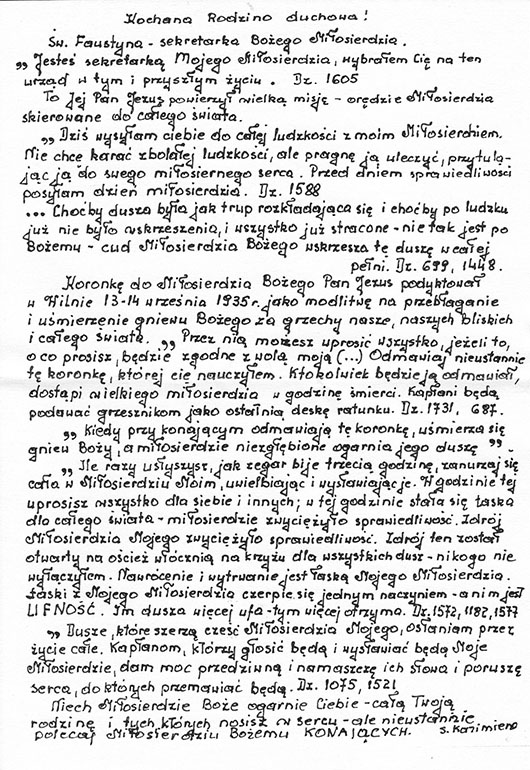 Kochana Rodzino duchowa!
Św. Faustyna - sekretarka Bożego Miłosierdzia.
„Jesteś sekretarką Mojego Miłosierdzia, wybrałem Cię na ten
urząd w tym i przyszłym życiu. Dz. 1605
To Jej Pan Jezus powierzył wielką misję - orędzie Miłosierdzia
skierowane do całego świata.
„Dziś wysyłam ciebie do całej ludzkości z moim Miłosierdziem.
Nie chcę karać zbolałej ludzkości, ale pragnę ją uleczyć, przytula-
jąc ją do swego miłosiernego serca. Przed dniem sprawiedliwości
posyłam dzień miłosierdzia. Dz. 1588
... Choćby dusza była jak trup rozkładająca się i choćby po ludzku
już nie było wskrzeszenia, i wszystko już stracone - nie tak jest po
Bożemu - cud Miłosierdzia Bożego wskrzesza tę duszę w całej
pełni. Dz. 699, 1448.
Koronkę do Miłosierdzia Bożego Pan Jezus podyktował
w Wilnie 13-14 września 1935 r. jako modlitwę na przebłaganie
i uśmierzenie gniewu Bożego za grzechy nasze, naszych bliskich
i całego świata. „Przez nią możesz uprosić wszystko, jeżeli to,
o co prosisz, będzie zgodne z wolą moją (...) Odmawiaj nieustannie
tę koronkę, której cię nauczyłem. Ktokolwiek będzie ją odmawiał,
dostąpi wielkiego miłosierdzia w godzinę śmierci. Kapłani będą
podawać grzesznikom jako ostatnią deskę ratunku. Dz. 1731, 687.
„Kiedy przy konającym odmawiają tę koronkę, uśmierza się
gniew Boży, a miłosierdzie niezgłębione ogarnia jego duszę”.
„Ile razy usłyszysz, jak zegar bije trzecią godzinę, zanurzaj się
cała w Miłosierdziu Moim, uwielbiając i wysławiając je. W godzinie tej
uprosisz wszystko dla siebie i innych; w tej godzinie stała się łaska
dla całego świata - miłosierdzie zwyciężyło sprawiedliwość. Zdrój
Miłosierdzia Mojego zwyciężyło sprawiedliwość. Zdrój ten został
otwarty na oścież włócznią na krzyżu dla wszystkich dusz - nikogo nie
wyłączyłem. Nawrócenie i wytrwanie jest łaską Mojego Miłosierdzia.
Łaski z Mojego Miłosierdzia czerpie się jednym naczyniem - a nim jest
UFNOŚĆ. Im dusza więcej ufa - tym więcej otrzyma. Dz. 1572, 1182, 1577
„Dusze, które szerzą cześć Miłosierdzia Mojego, osłaniam przez
życie całe. Kapłanom, którzy głosić będą i wysławiać będą Moje
Miłosierdzie, dam moc przedziwną i namaszczę ich słowa i poruszę
serca, do których przemawiać będą. Dz. 1075, 1521
Niech Miłosierdzie Boże ogarnie Ciebie - całą Twoją
rodzinę i tych, których nosisz w sercu - ale nieustannie
polecaj Miłosierdziu Bożemu KONAJĄCYCH. s. Kazimiera